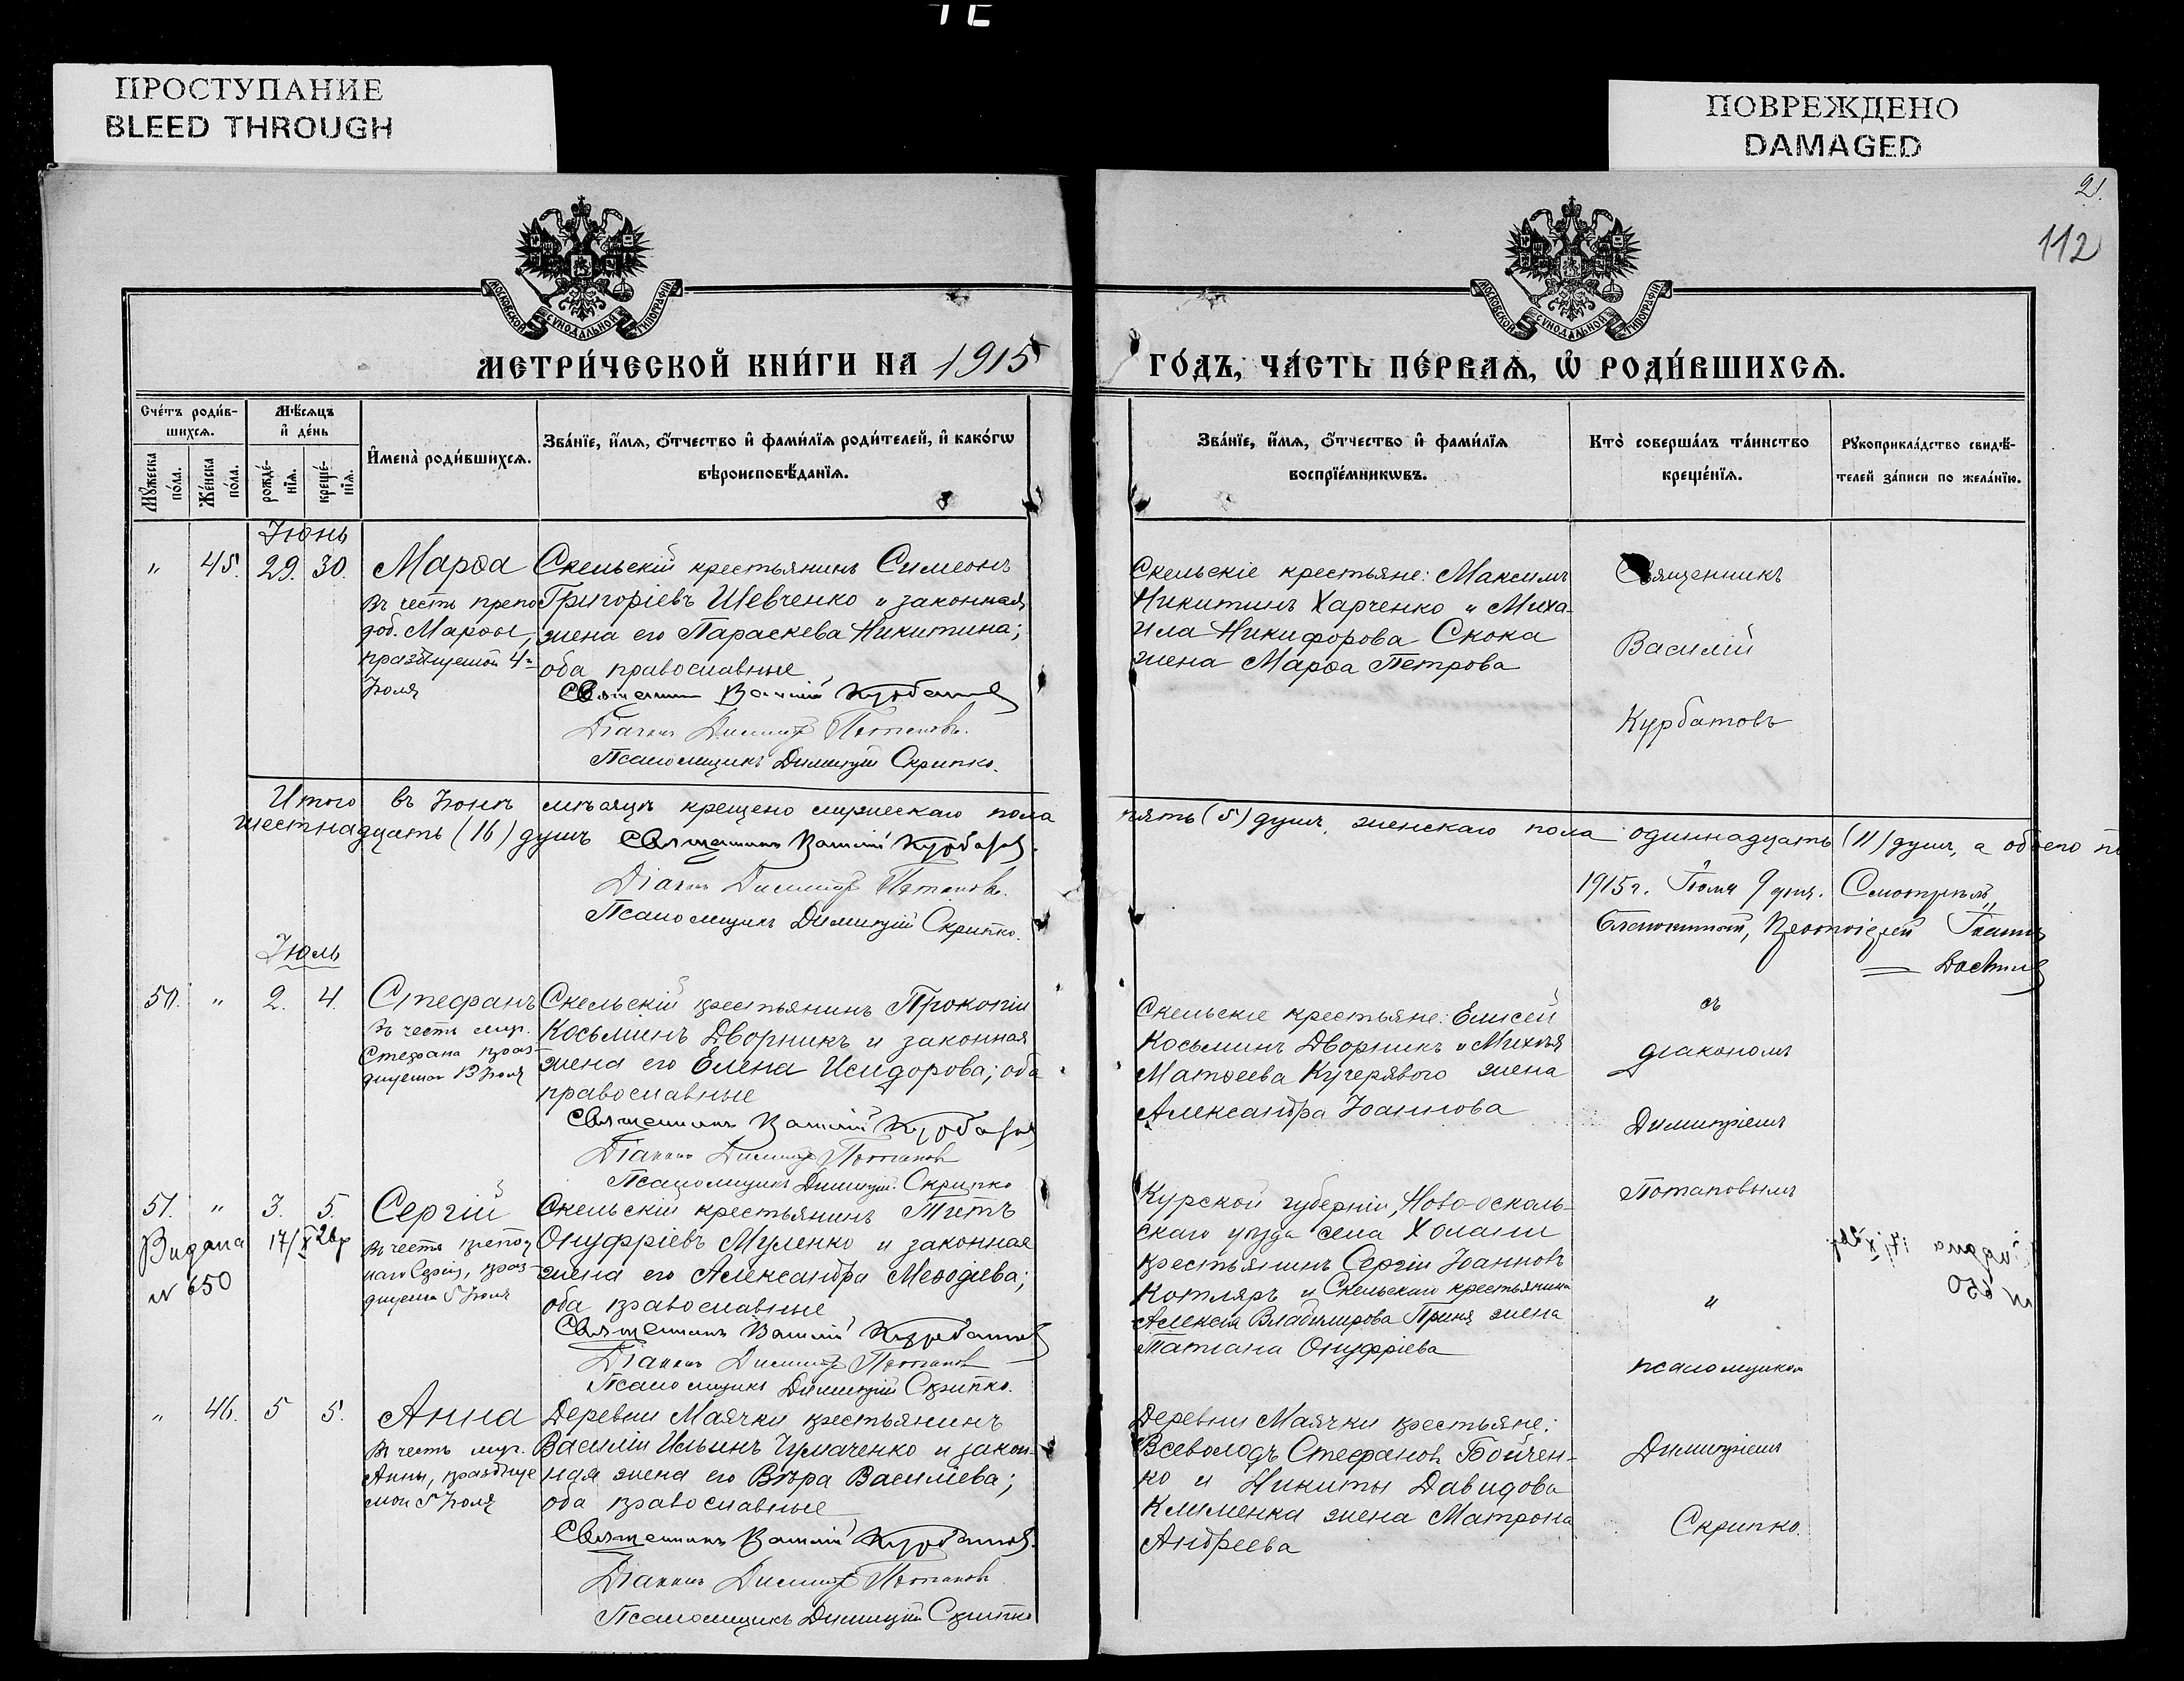 ПРОСТУПАНИЕ
BLEED THROUGH
ПОВРЕЖДЕНО
DAMAGED
2.
112
МОСКОВСКОЙ СѴНОДАЛЬНОЙ ТИПОГРАФІИ
МОСКОВСКОЙ СѴНОДАЛЬНОЙ ТИПОГРАФІИ
МЕТРИ́ЧЕСКОЙ КНИ́ГИ НА 1915
ГО́ДЪ, ЧА́СТЬ ПЕ́РВАѦ, Ѡ҆ РОДИ́ВШИХСѦ.
Сче́тъ роди́в-
шихсѧ.
Мꙋ́жеска по́ла.
Же́нска по́ла.
Мѣ́сѧцъ
и҆ де́нь
рожде́-
нїѧ.
креще́-
нїѧ.
И҆мена̀ роди́вшихсѧ.
Зва́нїе, и҆́мѧ, ѻ҆́тчество и҆ фами́лїѧ роди́телей, и҆ како́гѡ
вѣроисповѣ́данїѧ.
Зва́нїе, и҆́мѧ, ѻ҆́тчество и҆ фами́лїѧ
воспрїе́мникѡвъ.
Кто̀ соверша́лъ та́инство
креще́нїѧ.
Рꙋкоприкла́дство свидѣ́-
телей за́писи по жела́нїю.
Іюнь
" 45. 29. 30.
Марѳа
Въ честь препо
доб. Марѳы,
празднуемой 4-
Іюля
Скельскій крестьянинъ Симеонъ
Григоріевъ Шевченко и законная
жена его Параскева Никитина;
оба православные
Священникъ Василій Курбатовъ
Діаконъ Димитрій Потаповъ.
Псаломщикъ Димитрій Скрипко.
Скельскіе крестьяне: Максимъ
Никитинъ Харченко и Миха-
ила Никифорова Скока
жена Марѳа Петрова
Священникъ
Василій
Курбатовъ
Итого въ Іюнѣ мѣсяцѣ крещено мужескаго пола пять (5) душъ, женскаго пола одиннадцать (11) душъ, а обоего
шестнадцать (16) душъ Священникъ Василій Курбатовъ.
Діаконъ Димитрій Потаповъ.
Псаломщикъ Димитрій Скрипко.
1915 г. Іюля 9 дня. Смотрѣлъ,
Благочинный, Протоіерей Іоаннъ
Іюль
50. " 2. 4.
Стефанъ
Въ честь муч.
Стефана праз-
днуемаго 13 Іюля
Скельскій крестьянинъ Прокопій
Косьминъ Дворникъ и законная
жена его Елена Исидорова; оба
православные
Священникъ Василій Курбатовъ
Діаконъ Димитрій Потаповъ
Псаломщикъ Димитрій Скрипко
Скельскіе крестьяне: Елисей
Косьминъ Дворникъ и Михея
Матѳеева Кучерявого жена
Александра Іоаннова
съ
діакономъ
Димитріемъ
Потаповымъ
51. " 3. 5.
Видана 17/X 26р
№ 650
Сергій
Въ честь препод
наго Сергія, праз-
днуемаго 5 Іюля
Скельскій крестьянинъ Титъ
Онуфріевъ Муленко и законная
жена его Александра Меѳодіева;
оба православные
Священникъ Василій Курбатовъ
Діаконъ Димитрій Потаповъ
Псаломщикъ Димитрій Скрипко.
Курской губерніи, Ново-осколь-
скаго уѣзда села Холани
крестьянинъ Сергій Іоанновъ
Котляръ и Скельскаго крестьянина
Алексія Владимирова жена
Татіана Онуфріева
и
псаломщикомъ
" 46. 5 5.
Анна
Въ честь муч.
Анны, праздуе
мой 5 Іюля
Деревни Маячки крестьянинъ
Василій Ильинъ Чумаченко и закон-
ная жена его Вѣра Василіева;
оба православные
Священникъ Василій Курбатовъ.
Діаконъ Димитрій Потаповъ
Псаломщикъ Димитрій Скрипко
Деревни Маячки крестьяне:
Всеволодъ Стефановъ Бойчен-
ко и Никиты Давидова
Клименка жена Матрона
Андреева
Димитріемъ
Скрипко.